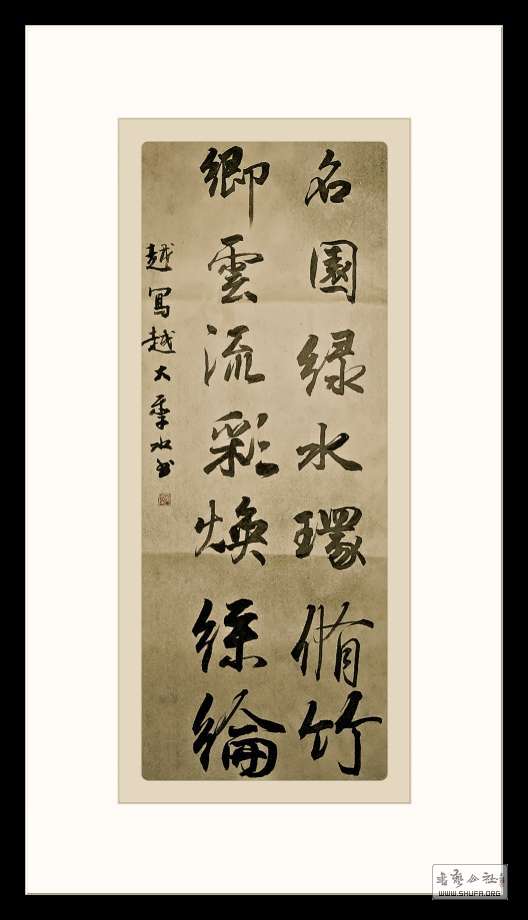 名園緑水環脩竹
卿雲流彩煥絲綸
越寫越大季水书
書藝公社
WWW.SHUFA.ORG